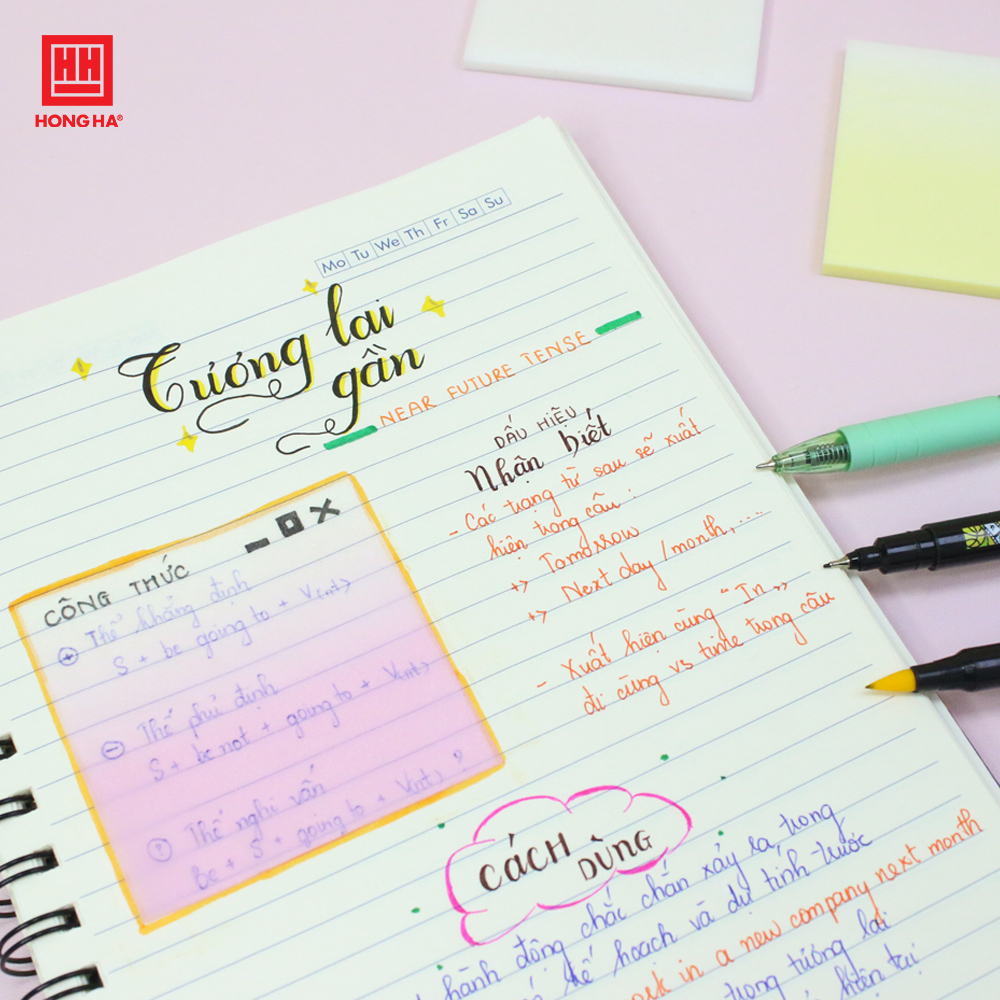 HH
HONG HA®
Mo Tu We Th Fr Sa Su
Tương lai
gần
NEAR FUTURE TENSE
DẤU HIỆU
Nhận biết
- Các trạng từ sau sẽ xuất
hiện trong câu :
+> Tomorrow
+> Next day /month, ....
- Xuất hiện cùng "In"
đi cùng vs time trong câu
CÔNG THỨC
+ Thể khẳng định
S + be going to + V(nt)
- Thể phủ định
S + be not + going to + V(nt)
? Thể nghi vấn
Be + S + going to + V(nt) ?
CÁCH DÙNG
hành động chắc chắn xảy ra trong
kế hoạch và dự tính trước
in a new company next month
trong tương lai
hiện tại